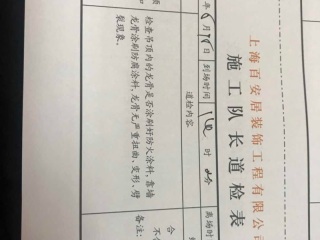 上海百安居装饰工程有限公司
施工队长道检表
年6月16日 到场时间 时 分 离场时
道检内容
合
检查吊顶内的龙骨是否涂刷好防火涂料,靠墙
龙骨涂刷防腐涂料,龙骨无严重扭曲,变形,劈
裂现象。
备注: